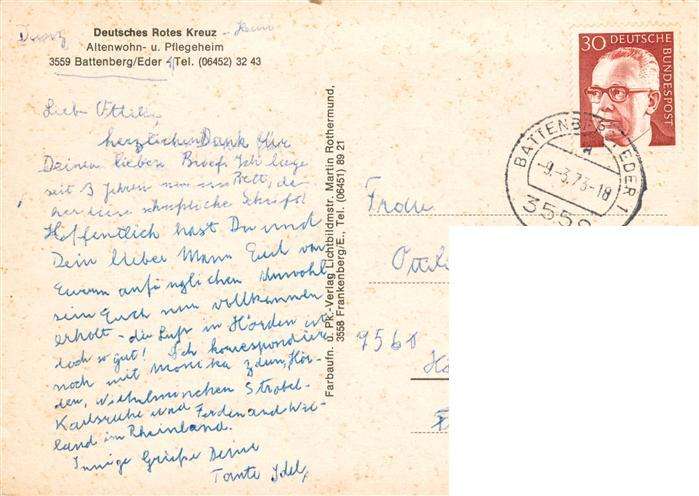 Deutsches Rotes Kreuz
Altenwohn- u. Pflegeheim
3559 Battenberg/Eder Tel. (06452) 32 43
Liebe Ottilie,
herzlichen Dank für
Deinen lieben Brief. Ich liege
seit 3 Jahren nun im Bett, da-
her diese Schrift
Hoffentlich hast Du und
Dein lieber Mann Euch von
Eurem anfänglichen Unwohl
sein Euch nun vollkommen
erholt - die Luft in Hörden ist
doch so gut! Ich korrespondiere
noch mit Monika Hör-
den, Strobel-
Karlsruhe und Ferdinand Wie-
land im Rheinland.
Innige Grüße Deine
Tante
Farbaufn. u. Pk.-Verlag Lichtbildmstr. Martin Rothermund,
3558 Frankenberg/E., Tel. (06451) 89 21
30 DEUTSCHE
BUNDESPOST
BATTENBERG EDER 1
-9.-3.73-18
3559
Frau
Ottili
7561
Hö